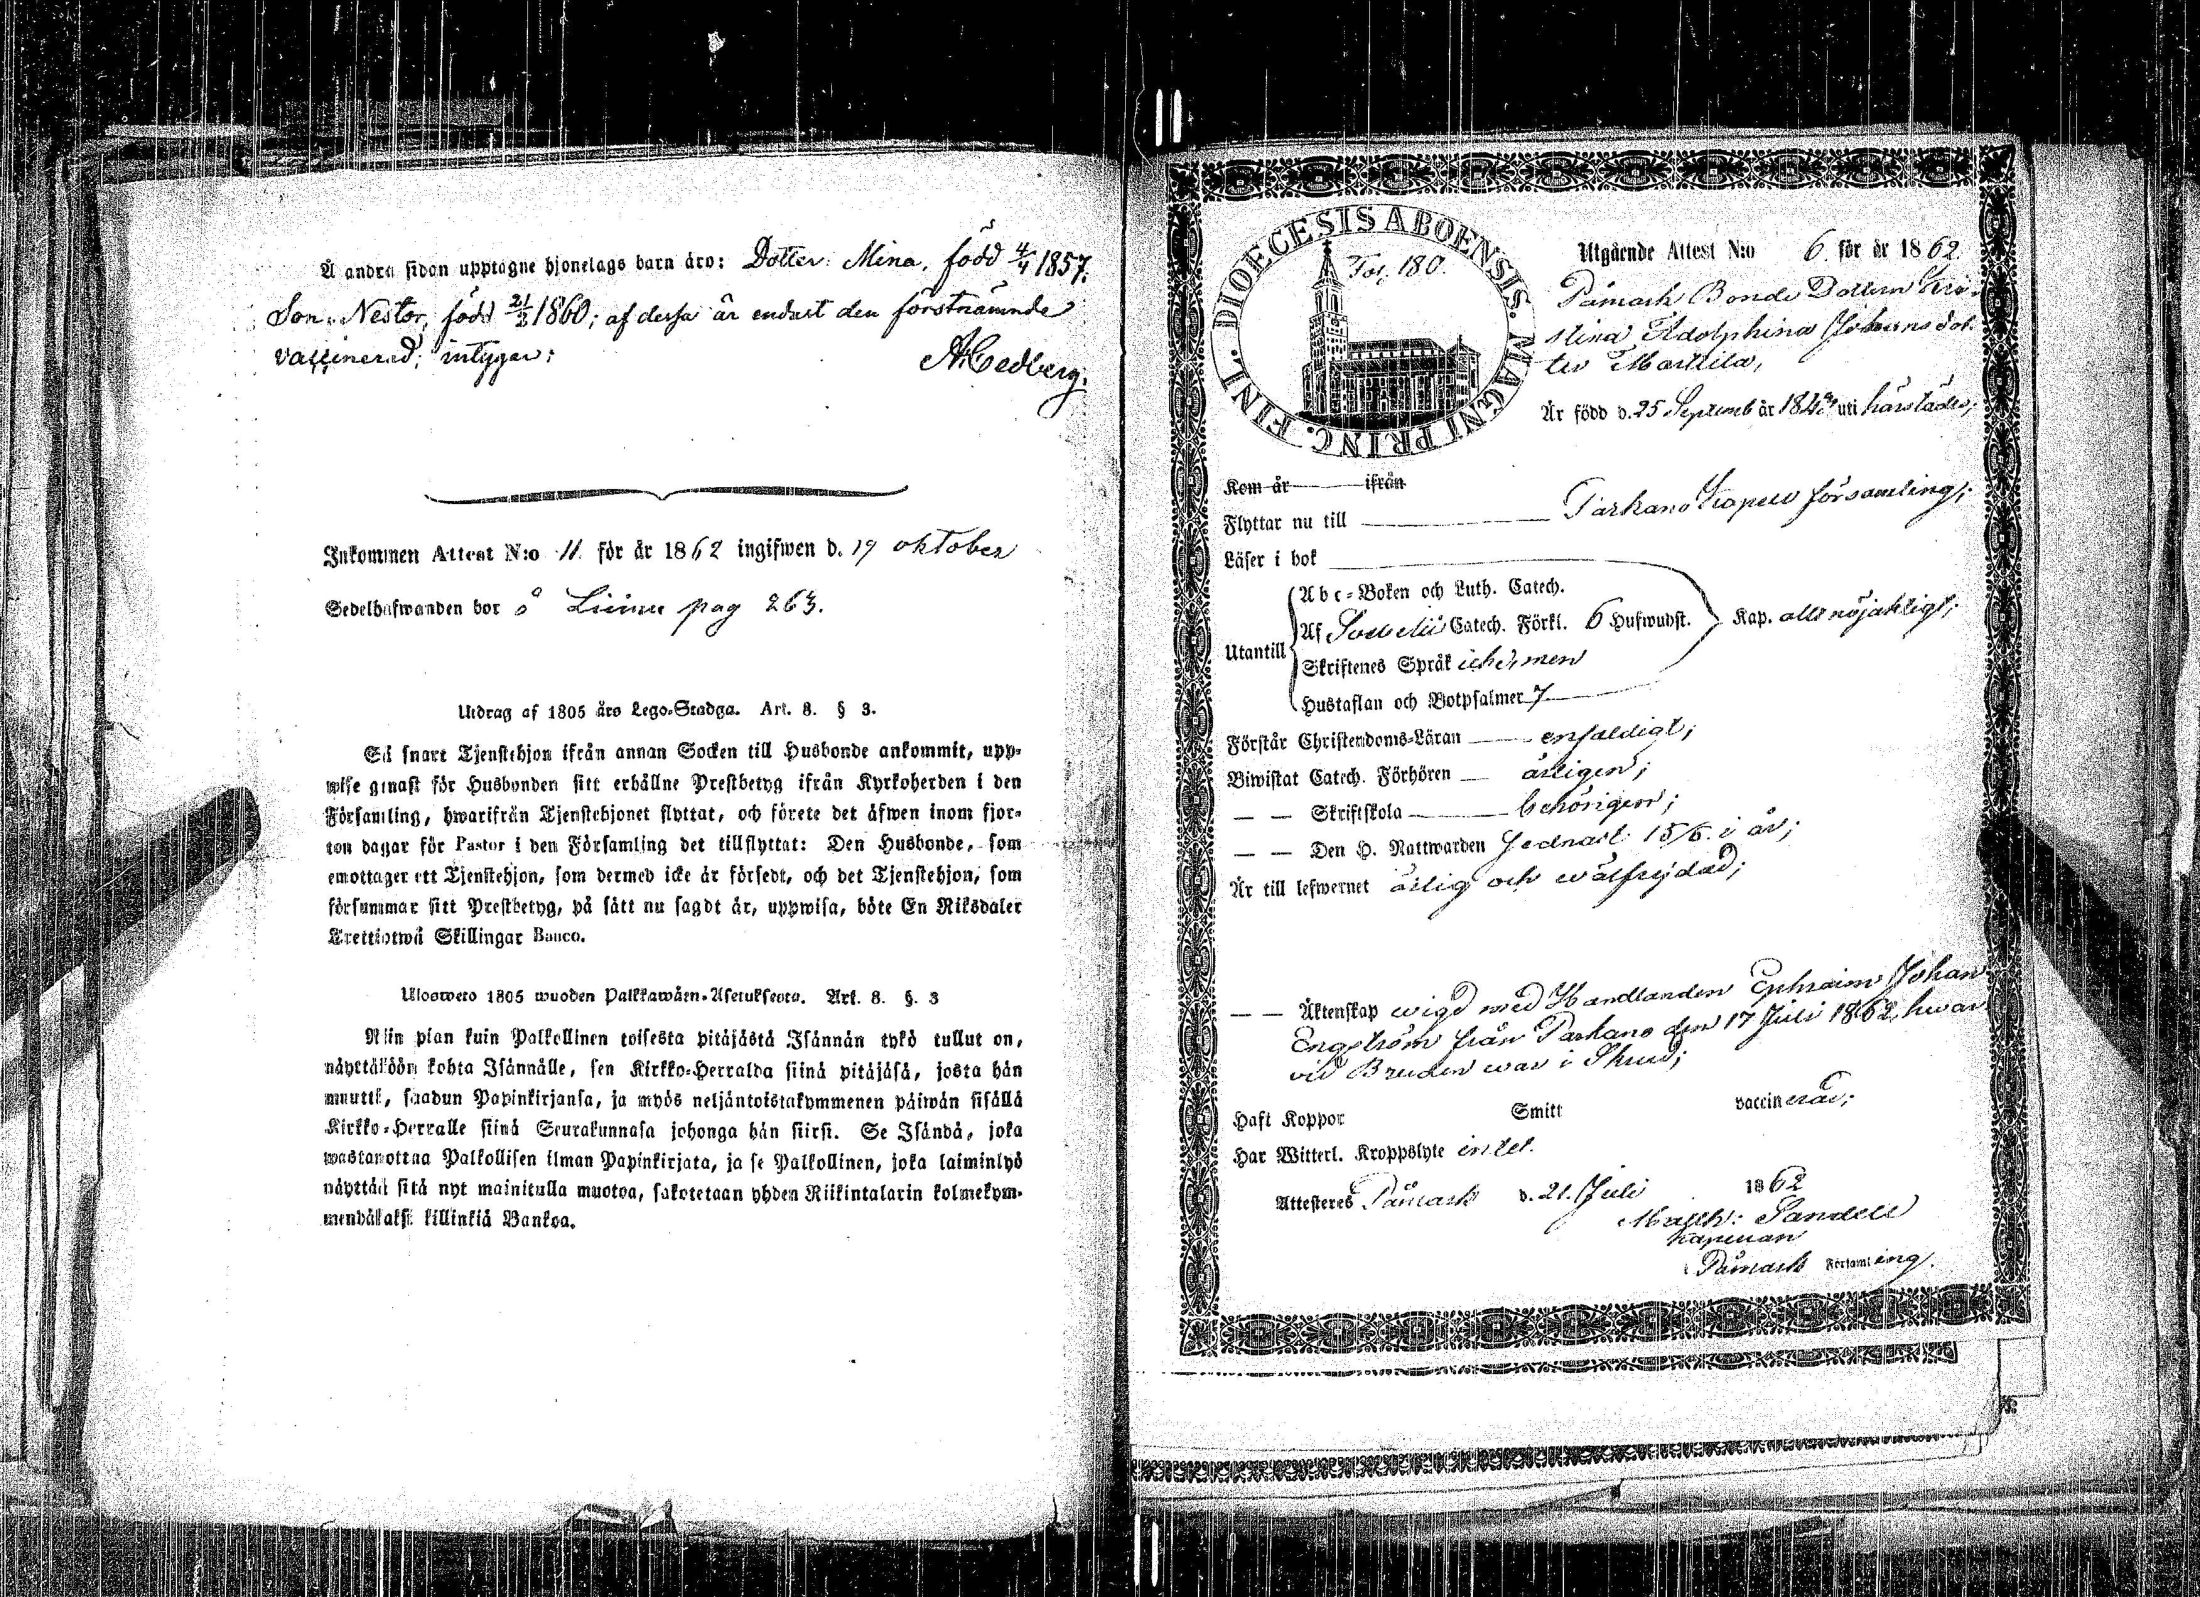 Å andra sidan upptagne hjonelags barn äro: Dotter: Mina, född 4/4 1857.
Son: Nestor, född 21/2 1860; af dessa är endast den förstnämnde
vaccinerad; intygar:
A. Cedberg.
Inkommen Attest N:o 11. för år 1862 ingifwen d. 19 oktober
Sedelhafwanden bor å pag 263.
Utdrag af 1805 års Lego-Stadga. Art. 8. § 3.
Så snart Tjenstehjon ifrån annan Socken till Husbonde ankommit, upp-
wise genast för Husbonden sitt erhållne Prestbetyg ifrån Kyrkoherden i den
Församling, hwarifrån Tjenstehjonet flyttat, och förete det äfwen inom fjor-
ton dagar för Pastor i den Församling det tillflyttat: Den Husbonde, som
emottager ett Tjenstehjon, som dermed icke är försedt, och det Tjenstehjon, som
försummar sitt Prestbetyg, på sätt nu sagdt är, uppwisa, böte En Riksdaler
Trettiotwå Skillingar Banco.
Ulosweto 1805 wuoden Palkkawäen-Asetuksesta. Art. 8. §. 3
Niin pian kuin Palkollinen toisesta pitäjästä Isännän tykö tullut on,
näyttäköön kohta Isännälle, sen Kirkko-Herralda siinä pitäjäsä, josta hän
muutti, saadun Papinkirjansa, ja myös neljäntoistakymmenen päiwän sisällä
Kirkko-Herralle siinä Seurakunnasa johonga hän siirsi. Se Isändä, joka
wastanottaa Palkollisen ilman Papinkirjata, ja se Palkollinen, joka laiminlyö
näyttää sitä nyt mainitulla muotoa, sakotetaan yhden Riikintalarin kolmekym-
mendäkaksi killinkiä Bankoa.
FINL. DIOECESIS ABOENSIS. MAGNI PRINC.
Fol. 180.
Utgående Attest N:o 6. för år 1862.
Påmark Bonde Dottern Kri-
stina Adolphina Johansdot-
ter Marttila,
Är född d. 25 Septemb år 184 uti härstädes;
Kom år ifrån
Flyttar nu till Parkano Kapell församling;
Läser i bok
Utantill
Abc-Boken och Luth. Catech.
Af Svebelii Catech. Förkl. 6 Hufwudst. Kap. allt nöjaktigt;
Skriftenes Språk icke, men
Hustaflan och Botpsalmer 7
Förstår Christendoms-Läran enfaldigt;
Biwistat Catech. Förhören årligen;
— — Skriftskola behörigen;
— — Den H. Nattwarden sednast 15/6 i år;
Är till lefwernet ärlig och wälfrejdad;
— — Äktenskap wigd med Handlanden Ephraim Johan
Engström från Parkano den 17 Juli 1862, hwar
vid Bruden war i Skrud;
Haft Koppor Smitt vaccinerad;
Har Witterl. Kroppslyte intet.
Attesteres Påmark d. 21. Juli 1862
Matth: Sandell
Kapellan
Påmark Församling.